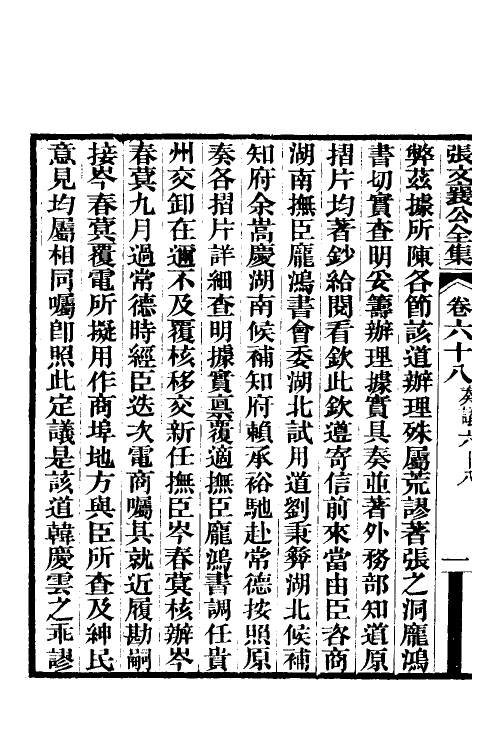 張文襄公全集 卷六十八 奏議六十八 一
弊茲據所陳各節該道辦理殊屬荒謬著張之洞龐鴻
書切實查明妥籌辦理據實具奏並著外務部知道原
摺片均著鈔給閱看欽此欽遵寄信前來當由臣咨商
湖南撫臣龐鴻書會委湖北試用道劉秉彝湖北候補
知府余嵩慶湖南候補知府賴承裕馳赴常德按照原
奏各摺片詳細查明據實稟覆適撫臣龐鴻書調任貴
州交卸在邇不及覆核移交新任撫臣岑春蓂核辦岑
春蓂九月過常德時經臣迭次電商囑其就近履勘嗣
接岑春蓂覆電所擬用作商埠地方與臣所查及紳民
意見均屬相同囑卽照此定議是該道韓慶雲之乖謬